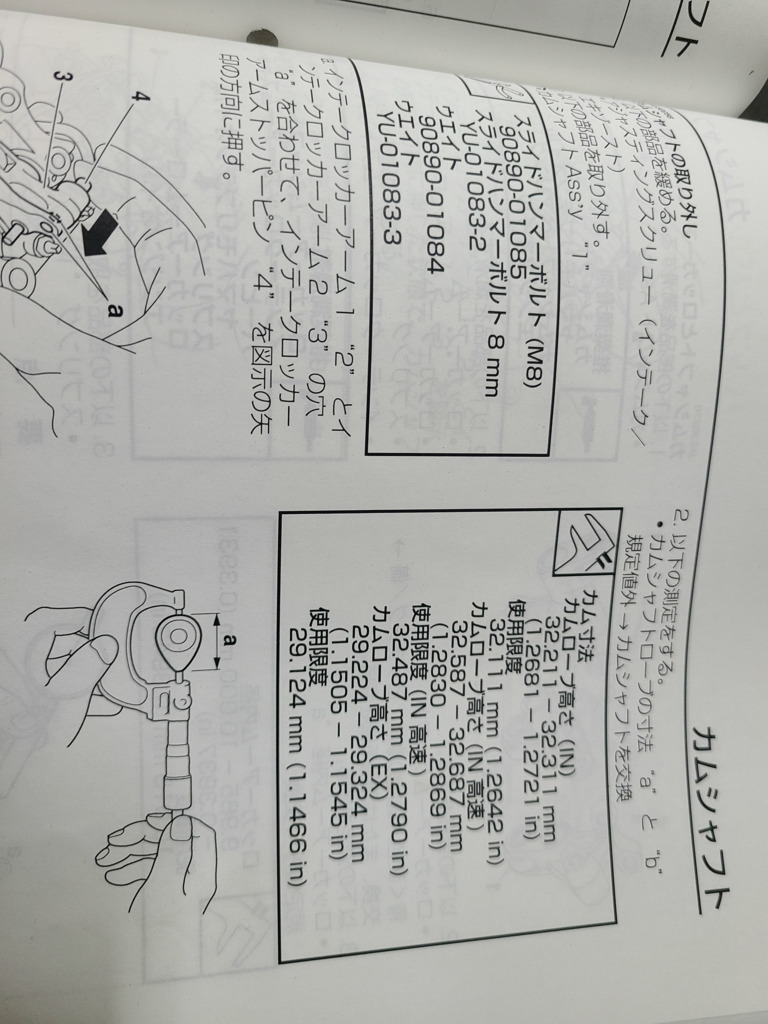 カムシャフト
フト
シャフトの取り外し
の部品を緩める。
ジャスティングスクリュー（インテーク／
キゾースト）
下の部品を取り外す。
カムシャフト Ass'y “1”
スライドハンマーボルト (M8)
90890-01085
スライドハンマーボルト 8 mm
YU-01083-2
ウエイト
90890-01084
ウエイト
YU-01083-3
インテークロッカーアーム 1 “2” とイ
ンテークロッカーアーム 2 “3” の穴
“a” を合わせて、インテークロッカー
アームストッパーピン “4” を図示の矢
印の方向に押す。
3
4
a
2. 以下の測定をする。
• カムシャフトローブの寸法 “a” と “b”
規定値外 → カムシャフトを交換
カム寸法
カムローブ高さ (IN)
32.211 – 32.311 mm
(1.2681 – 1.2721 in)
使用限度
32.111 mm (1.2642 in)
カムローブ高さ (IN 高速)
32.587 – 32.687 mm
(1.2830 – 1.2869 in)
使用限度 (IN 高速)
32.487 mm (1.2790 in)
カムローブ高さ (EX)
29.224 – 29.324 mm
(1.1505 – 1.1545 in)
使用限度
29.124 mm (1.1466 in)
a